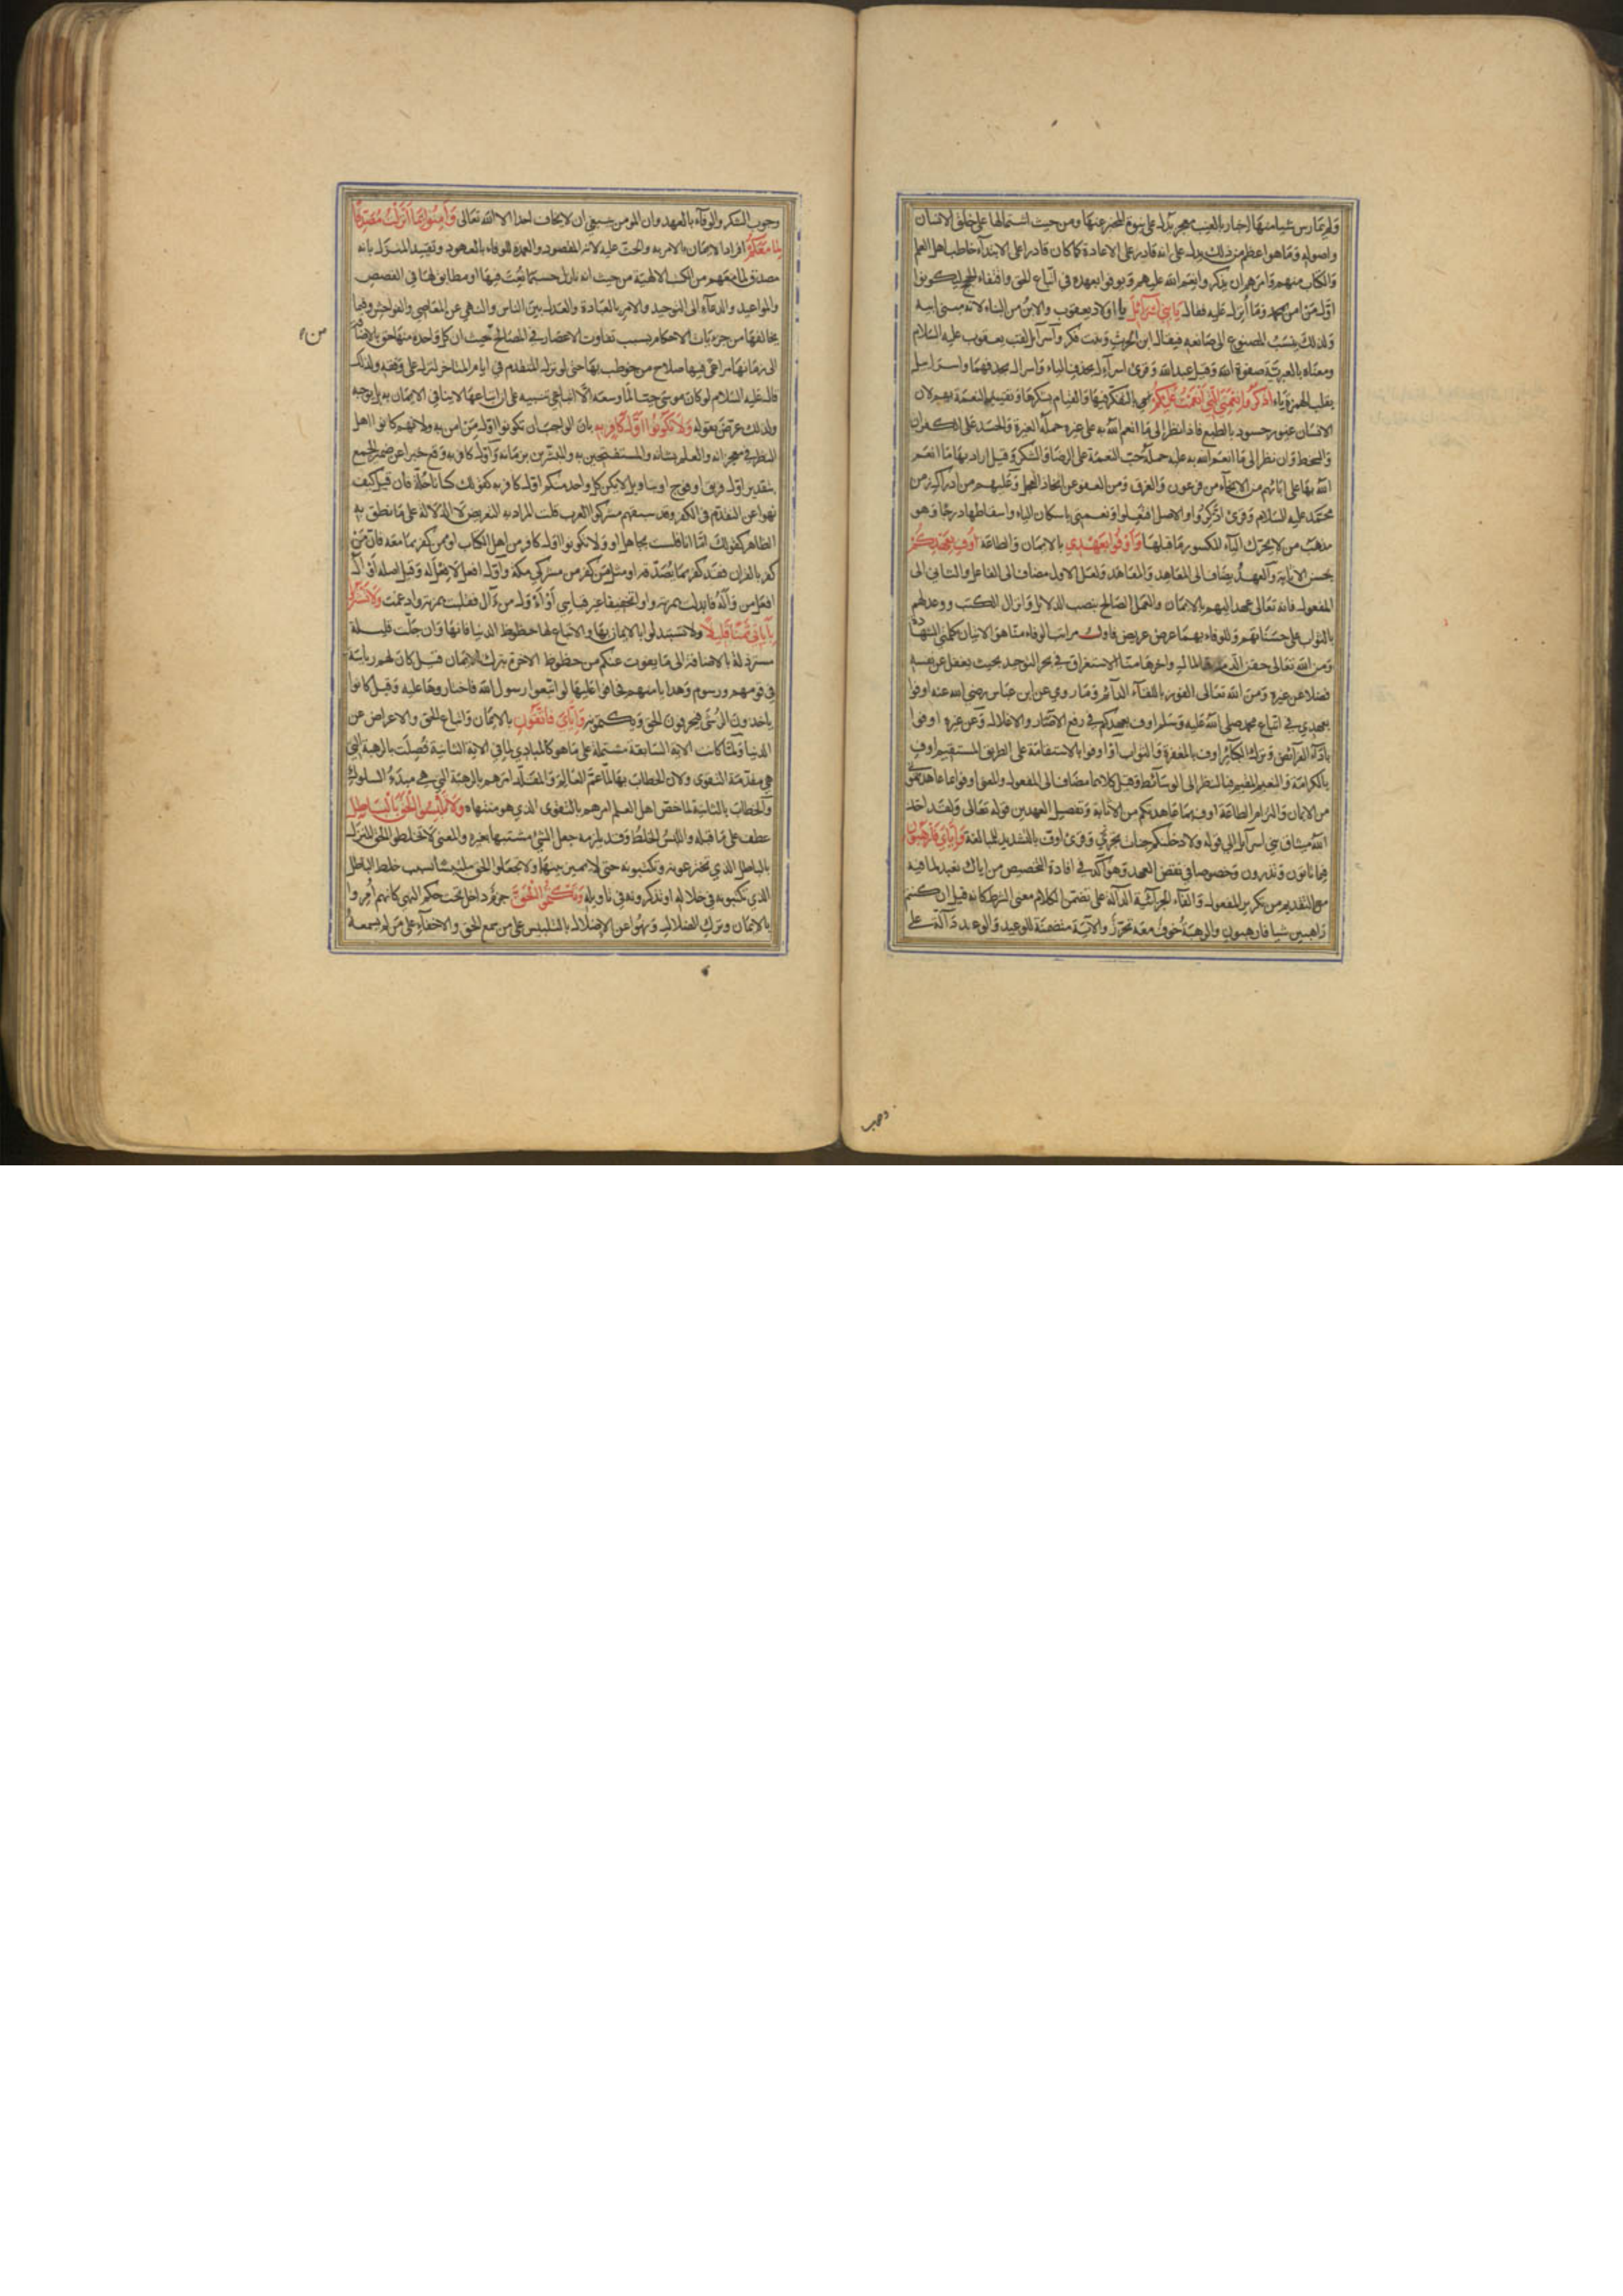 ولم يمارس شيا منها اخبار بالغيب معجز يدل على نبوة المخبر عنها ومن حيث اشتمالها على خلق الانسان
واصوله وما هو اعظم من ذلك يدل على انه قادر على الاعادة كما كان قادرا على الابتداء خاطب اهل العلم
والكتاب منهم وامرهم ان يذكروا نعم الله عليهم ويوفوا بعهده في اتباع الحق واقتفاء الحجج ليكونوا
اول من امن بمحمد وما أنزل عليه فقال يا بني اسرائيل يا اولاد يعقوب والابن من البناء لانه مبنى ابيه
ولذلك ينسب المصنوع الى صانعه فيقال ابن الحرث وبنت فكر واسرآيل لقب يعقوب عليه السلام
ومعناه بالعبرية صفوة الله وقيل عبد الله وقرئ اسرآئل بحذف الياء واسرال بحذفهما واسراييل
بقلب الهمزة ياء اذكروا نعمتي التي انعمت عليكم اي بالتفكر فيها والقيام بشكرها وتقييد النعمة بهم لان
الانسان غيور حسود بالطبع فاذا نظر الى ما انعم الله به على غيره حمله الغيرة والحسد على الكفران
والسخط وان نظر الى ما انعم الله به عليه حمله حب النعمة على الرضا والشكر وقيل اراد بها ما انعم
الله بها على ابائهم من الانجاء من فرعون والغرق ومن العفو عن اتخاذ العجل وعليهم من ادراك زمن
محمد عليه السلام وقرئ اذكروا والاصل افتعلوا ونعمتي باسكان الياء واسقاطها درجا وهو
مذهب من لا يحرك الياء المكسور ما قبلها واوفوا بعهدي بالايمان والطاعة اوف بعهدكم
بحسن الاثابة والعهد يضاف الى المعاهد والمعاهد ولعل الاول مضاف الى الفاعل والثاني الى
المفعول فانه تعالى عهد اليهم بالايمان والعمل الصالح بنصب الدلائل وانزال الكتب ووعد لهم
بالثواب على حسناتهم وللوفاء بهما عرض عريض فاول مراتب الوفاء منا هو الاتيان بكلمتي الشهادة
ومن الله تعالى حقن الدم والمال واخرها منا الاستغراق في بحر التوحيد بحيث يغفل عن نفسه
فضلا عن غيره ومن الله تعالى الفوز باللقاء الدائم وما روي عن ابن عباس رضي الله عنه اوفوا
بعهدي في اتباع محمد صلى الله عليه وسلم اوف بعهدكم في رفع الاصار والاغلال وعن غيره اوفوا
باداء الفرائض وترك الكبائر اوف بالمغفرة والثواب او اوفوا بالاستقامة على الطريق المستقيم اوف
بالكرامة والنعيم المقيم فبالنظر الى الوسائط وقيل كلاهما مضاف الى المفعول والمعنى اوفوا بما عاهدتموني
من الايمان والتزام الطاعة اوف بما عاهدتكم من الاثابة وتفصيل العهدين قوله تعالى ولقد اخذ
الله ميثاق بني اسرآيل الى قوله ولادخلنكم جنات تجري وقرئ اوف بالتشديد للمبالغة واياي فارهبون
فيما تاتون وتذرون وخصوصا في نقض العهد وهو آكد في افادة التخصيص من اياك نعبد لما فيه
مع التقديم من تكرير المفعول والفاء الجزائية الدالة على تضمن الكلام معنى الشرط كانه قيل ان كنتم
راهبين شيا فارهبون والرهبة خوف معه تحرز والاية متضمنة للوعيد والوعد دالة على
وجوب الشكر والوفاء بالعهد وان المؤمن ينبغي ان لا يخاف احدا الا الله تعالى وآمنوا بما انزلت مصدقا
لما معكم افراد الايمان بالامر به والحث عليه لانه المقصود والعمدة للوفاء بالعهود وتقييد المنزل بانه
مصدق لما معهم من الكتب الالهية من حيث انه نازل حسبما نعت فيها او مطابق لها في القصص
والمواعيد والدعاء الى التوحيد والامر بالعبادة والعدل بين الناس والنهي عن المعاصي والفواحش وفيما
يخالفها من جزئيات الاحكام بسبب تفاوت الاعصار في المصالح من حيث ان كل واحدة منها حق بالاضافة
الى زمانها مراعى فيها صلاح من خوطب بها حتى لو نزل المتقدم في ايام المتاخر لنزل على وفقه ولذلك
قال عليه السلام لو كان موسى حيا لما وسعه الا اتباعي تنبيه على ان اتباعها لا ينافي الايمان به بل يوجبه
ولذلك عرض بقوله ولا تكونوا اول كافر به بان الواجب ان تكونوا اول من امن به ولانهم كانوا اهل
النظر في معجزاته والعلم بشانه والمستفتحين به والمبشرين بزمانه واول كافر به وقع خبرا عن ضمير الجمع
بتقدير اول فريق او فوج او بتاويل لا يكن كل واحد منكم اول كافر به كقولك كسانا حلة فان قيل كيف
نهوا عن التقدم في الكفر وقد سبقهم مشركوا العرب قلت المراد به التعريض لا الدلالة على ما نطق به
الظاهر كقولك اما انا فلست بجاهل او ولا تكونوا اول كافر من اهل الكتاب او ممن كفر بما معه فان من
كفر بالقران فقد كفر بما يصدقه او مثل من كفر من مشركي مكة واول افعل لا فعل له وقيل اصله اوأل
افعل من وأل فابدلت همزته واوا تخفيفا غير قياسي او أأول من آل فقلبت همزته وادغمت ولا تشتروا
بآياتي ثمنا قليلا ولا تستبدلوا بالايمان بها والاتباع لها حظوظ الدنيا فانها وان جلت قليلة
مسترذلة بالاضافة الى ما يفوت عنكم من حظوظ الاخرة بترك الايمان قيل كان لهم رياسة
في قومهم ورسوم وهدايا منهم فخافوا عليها لو اتبعوا رسول الله فاختاروها عليه وقيل كانوا
ياخذون الرشى فيحرفون الحق ويكتمونه واياي فاتقون بالايمان واتباع الحق والاعراض عن
الدنيا ولما كانت الاية السابقة مشتملة على ما هو كالمبادي لما في الاية الثانية فصلت بالرهبة التي
هي مقدمة التقوى ولان الخطاب بها لما عم العالم والمقلد امرهم بالرهبة التي هي مبدء السلوك
والخطاب بالثانية لما خص اهل العلم امرهم بالتقوى الذي هو منتهاه ولا تلبسوا الحق بالباطل
عطف على ما قبله واللبس الخلط وقد يلزمه جعل الشئ مشتبها بغيره والمعنى لا تخلطوا الحق المنزل
بالباطل الذي تخترعونه وتكتبونه حتى لا يميز بينهما ولا تجعلوا الحق ملتبسا بسبب خلط الباطل
الذي تكتبونه في خلاله او تذكرونه في تاويله وتكتموا الحق جزم داخل تحت حكم النهي كانهم أمروا
بالايمان وترك الضلال ونهوا عن الاضلال بالتلبيس على من سمع الحق والاخفاء على من لم يسمعه